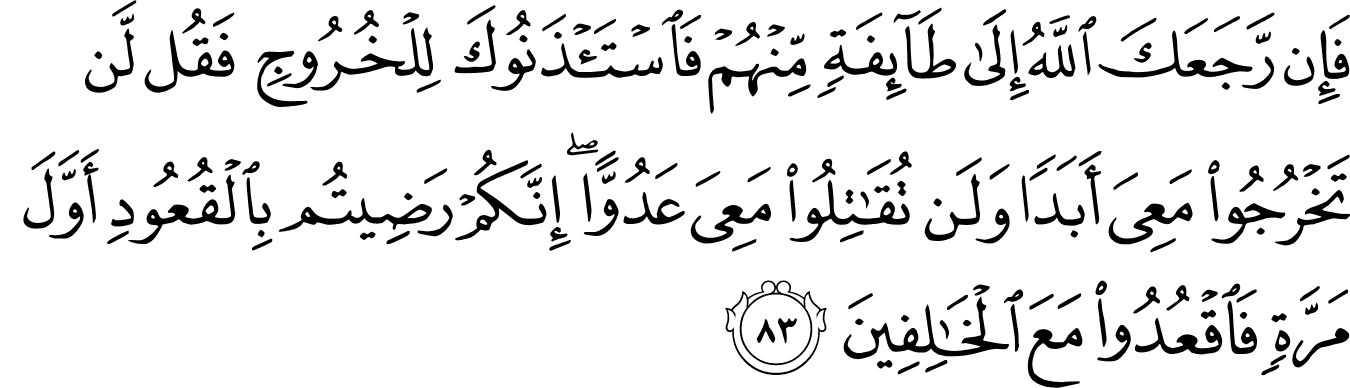 فَإِن رَّجَعَكَ ٱللَّهُ إِلَىٰ طَآئِفَةٍ مِّنْهُمْ فَٱسْتَـْٔذَنُوكَ لِلْخُرُوجِ فَقُل لَّن
تَخْرُجُوا۟ مَعِىَ أَبَدًا وَلَن تُقَـٰتِلُوا۟ مَعِىَ عَدُوًّا ۖ إِنَّكُمْ رَضِيتُم بِٱلْقُعُودِ أَوَّلَ
مَرَّةٍ فَٱقْعُدُوا۟ مَعَ ٱلْخَـٰلِفِينَ ٨٣